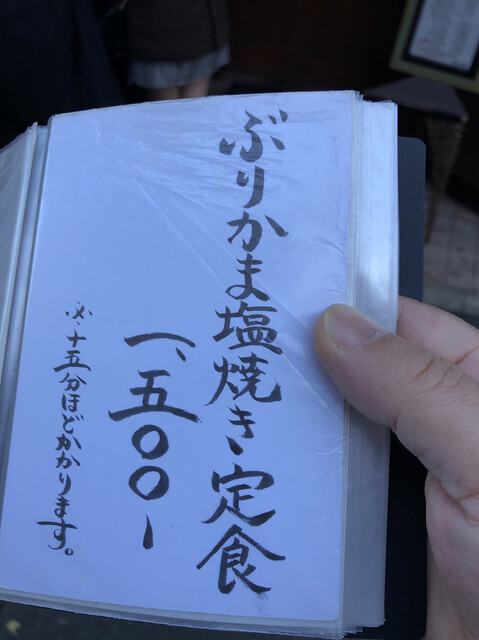 ぶりかま塩焼き定食
一、五〇〇ー
※十五分ほどかかります。